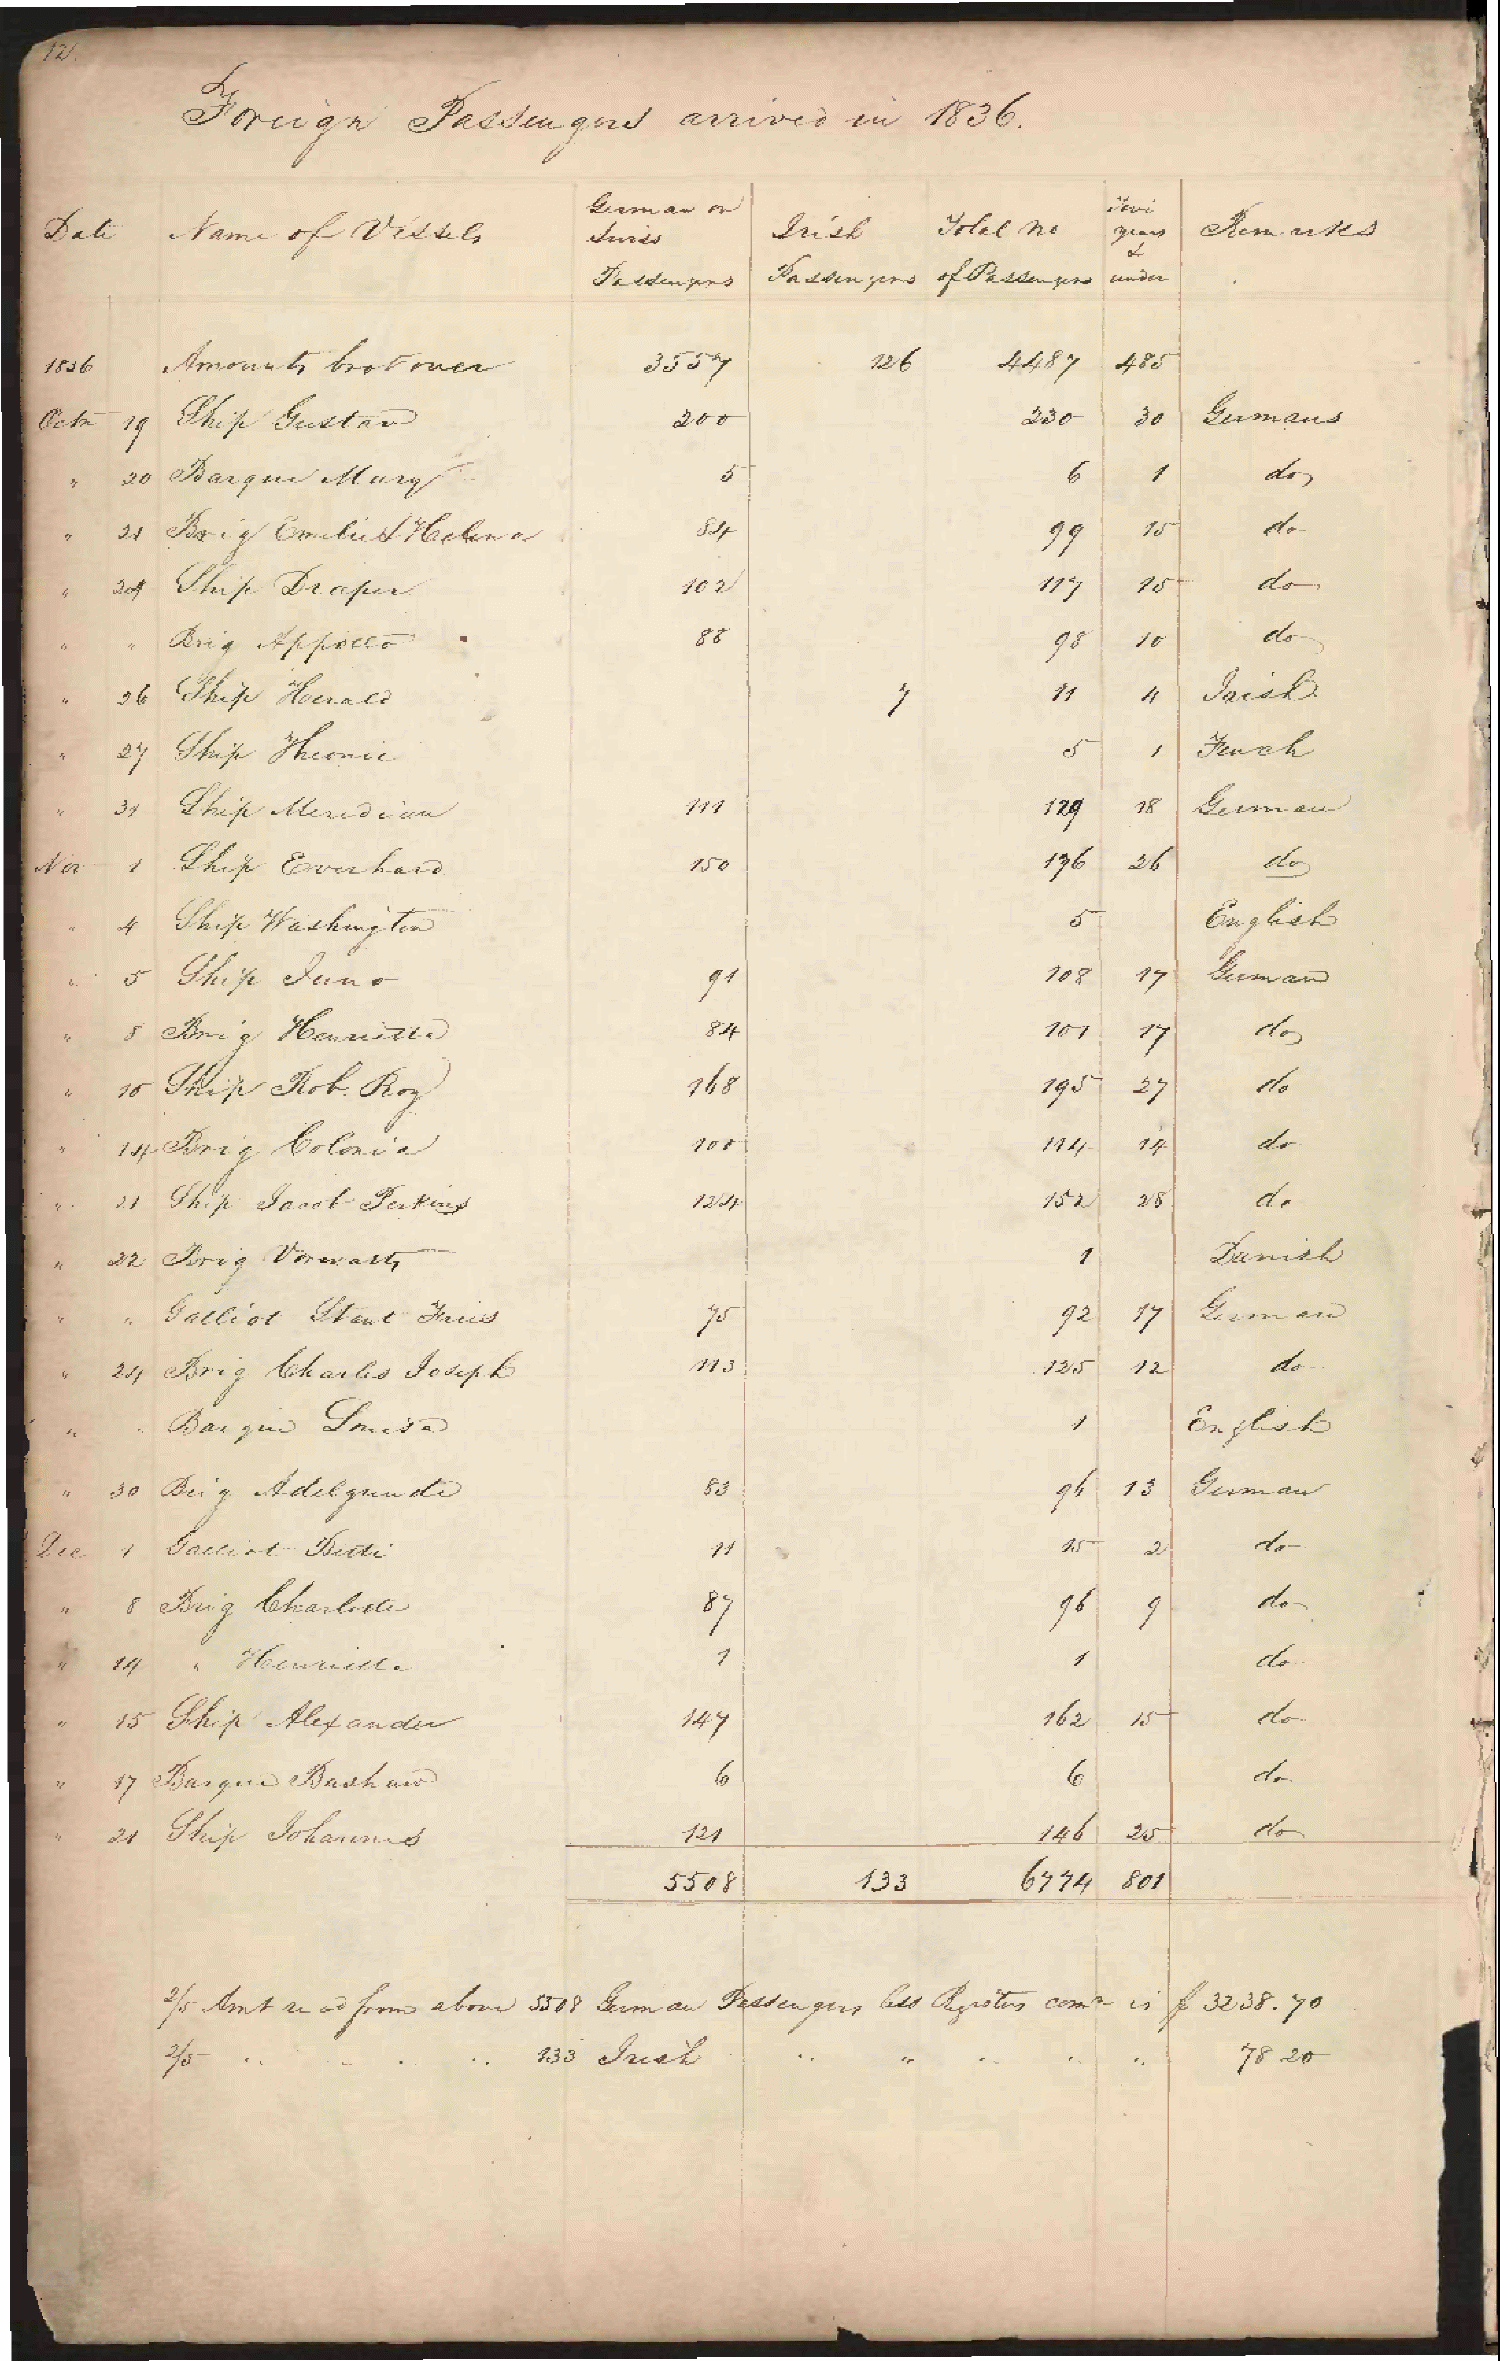 12.
Foreign Passengers arrived in 1836.
Date Name of Vessels German or Swiss Passengers Irish Passengers Total No of Passengers Five years & under Remarks
1836 Amounts brot over 3557 126 4487 485
Octr 19 Ship Gustav 200 230 30 Germans
" 20 Barque Mary 5 6 1 do
" 21 Brig Emelie & Helena 84 99 15 do
" 24 Ship Draper 102 117 15 do
" " Brig Appollo 88 98 10 do
" 26 Ship Herald 7 11 4 Irish
" 27 Ship 5 1 French
" 31 Ship Meridian 111 129 18 German
Nov 1 Ship Everhard 150 176 26 do
" 4 Ship Washington 5 English
" 5 Ship Juno 91 108 17 German
" 8 Brig Henrietta 84 101 17 do
" 10 Ship Rob. Roy 168 195 27 do
" 14 Brig Colonia 100 114 14 do
" 21 Ship Jacob Perkins 124 152 28 do
" 22 Brig Vorwarts 1 Danish
" " Galliot Stent Fries 75 92 17 German
" 24 Brig Charles Joseph 113 125 12 do
" " Barque Louisa 1 English
" 30 Brig Adelgunde 83 96 13 German
Dec 1 Galliot Betti 11 15 2 do
" 8 Brig Charlotte 87 96 9 do
" 14 " Henrietta 1 1 do
" 15 Ship Alexander 147 162 15 do
" 17 Barque Bashaw 6 6 do
" 21 Ship Johannes 121 146 25 do
5508 133 6774 801
2/5 Amt recd from above 5508 German Passengers less Registers comn is $ 3238.70
2/5 " " " " 133 Irish " " " " " 78 20